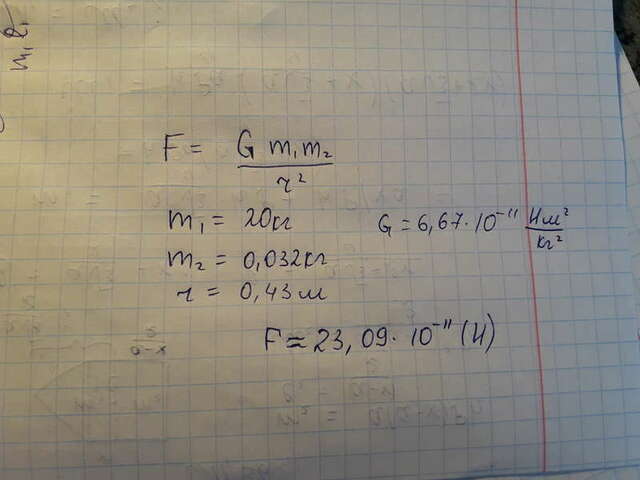 m₁ m₂
F = G m₁m₂ / r²
m₁ = 20кг G = 6,67·10⁻¹¹ Нм²/кг²
m₂ = 0,032кг
r = 0,43м
F ≈ 23,09·10⁻¹¹ (Н)